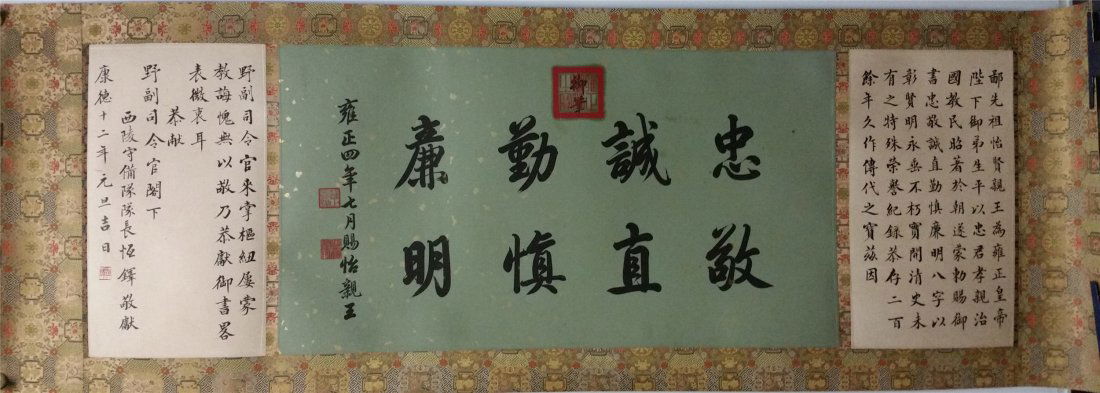 鄙先祖怡賢親王為雍正皇帝
陛下御弟生平以忠君孝親治
國教民昭著於朝遂蒙勅賜御
書忠敬誠直勤慎廉明八字以
彰賢明永垂不朽實開清史未
有之特殊榮譽紀錄恭存二百
餘年久作傳代之寶茲因
御筆
忠敬
誠直
勤慎
廉明
雍正四年七月賜怡親王
野副司令官來掌樞紐屢蒙
教誨愧無以敬乃恭獻御書畧
表微衷耳
恭献
野副司令官閣下
西陵守備隊隊長恆鐸敬獻
康德十二年元旦吉日